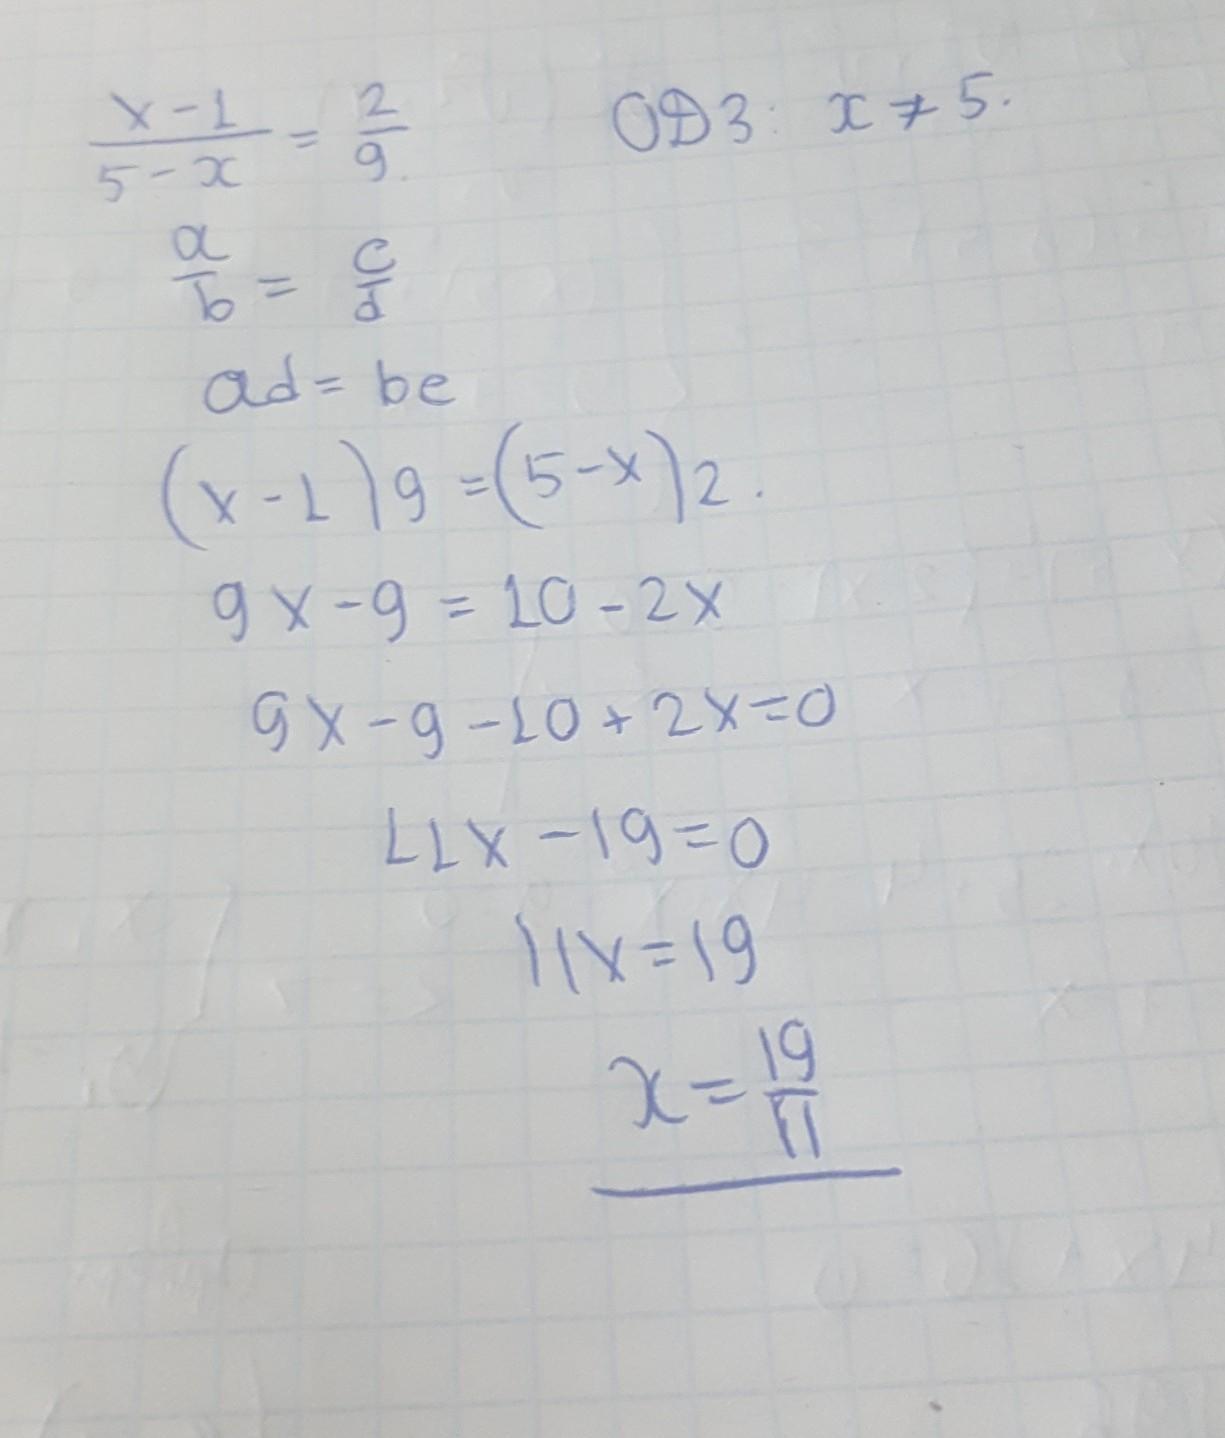 x-1/5-x = 2/9. ОДЗ: x ≠ 5.
a/b = c/d
ad = bc
(x-1)9 = (5-x)2.
9x-9 = 10-2x
9x-9-10+2x=0
11x-19=0
11x=19
x = 19/11